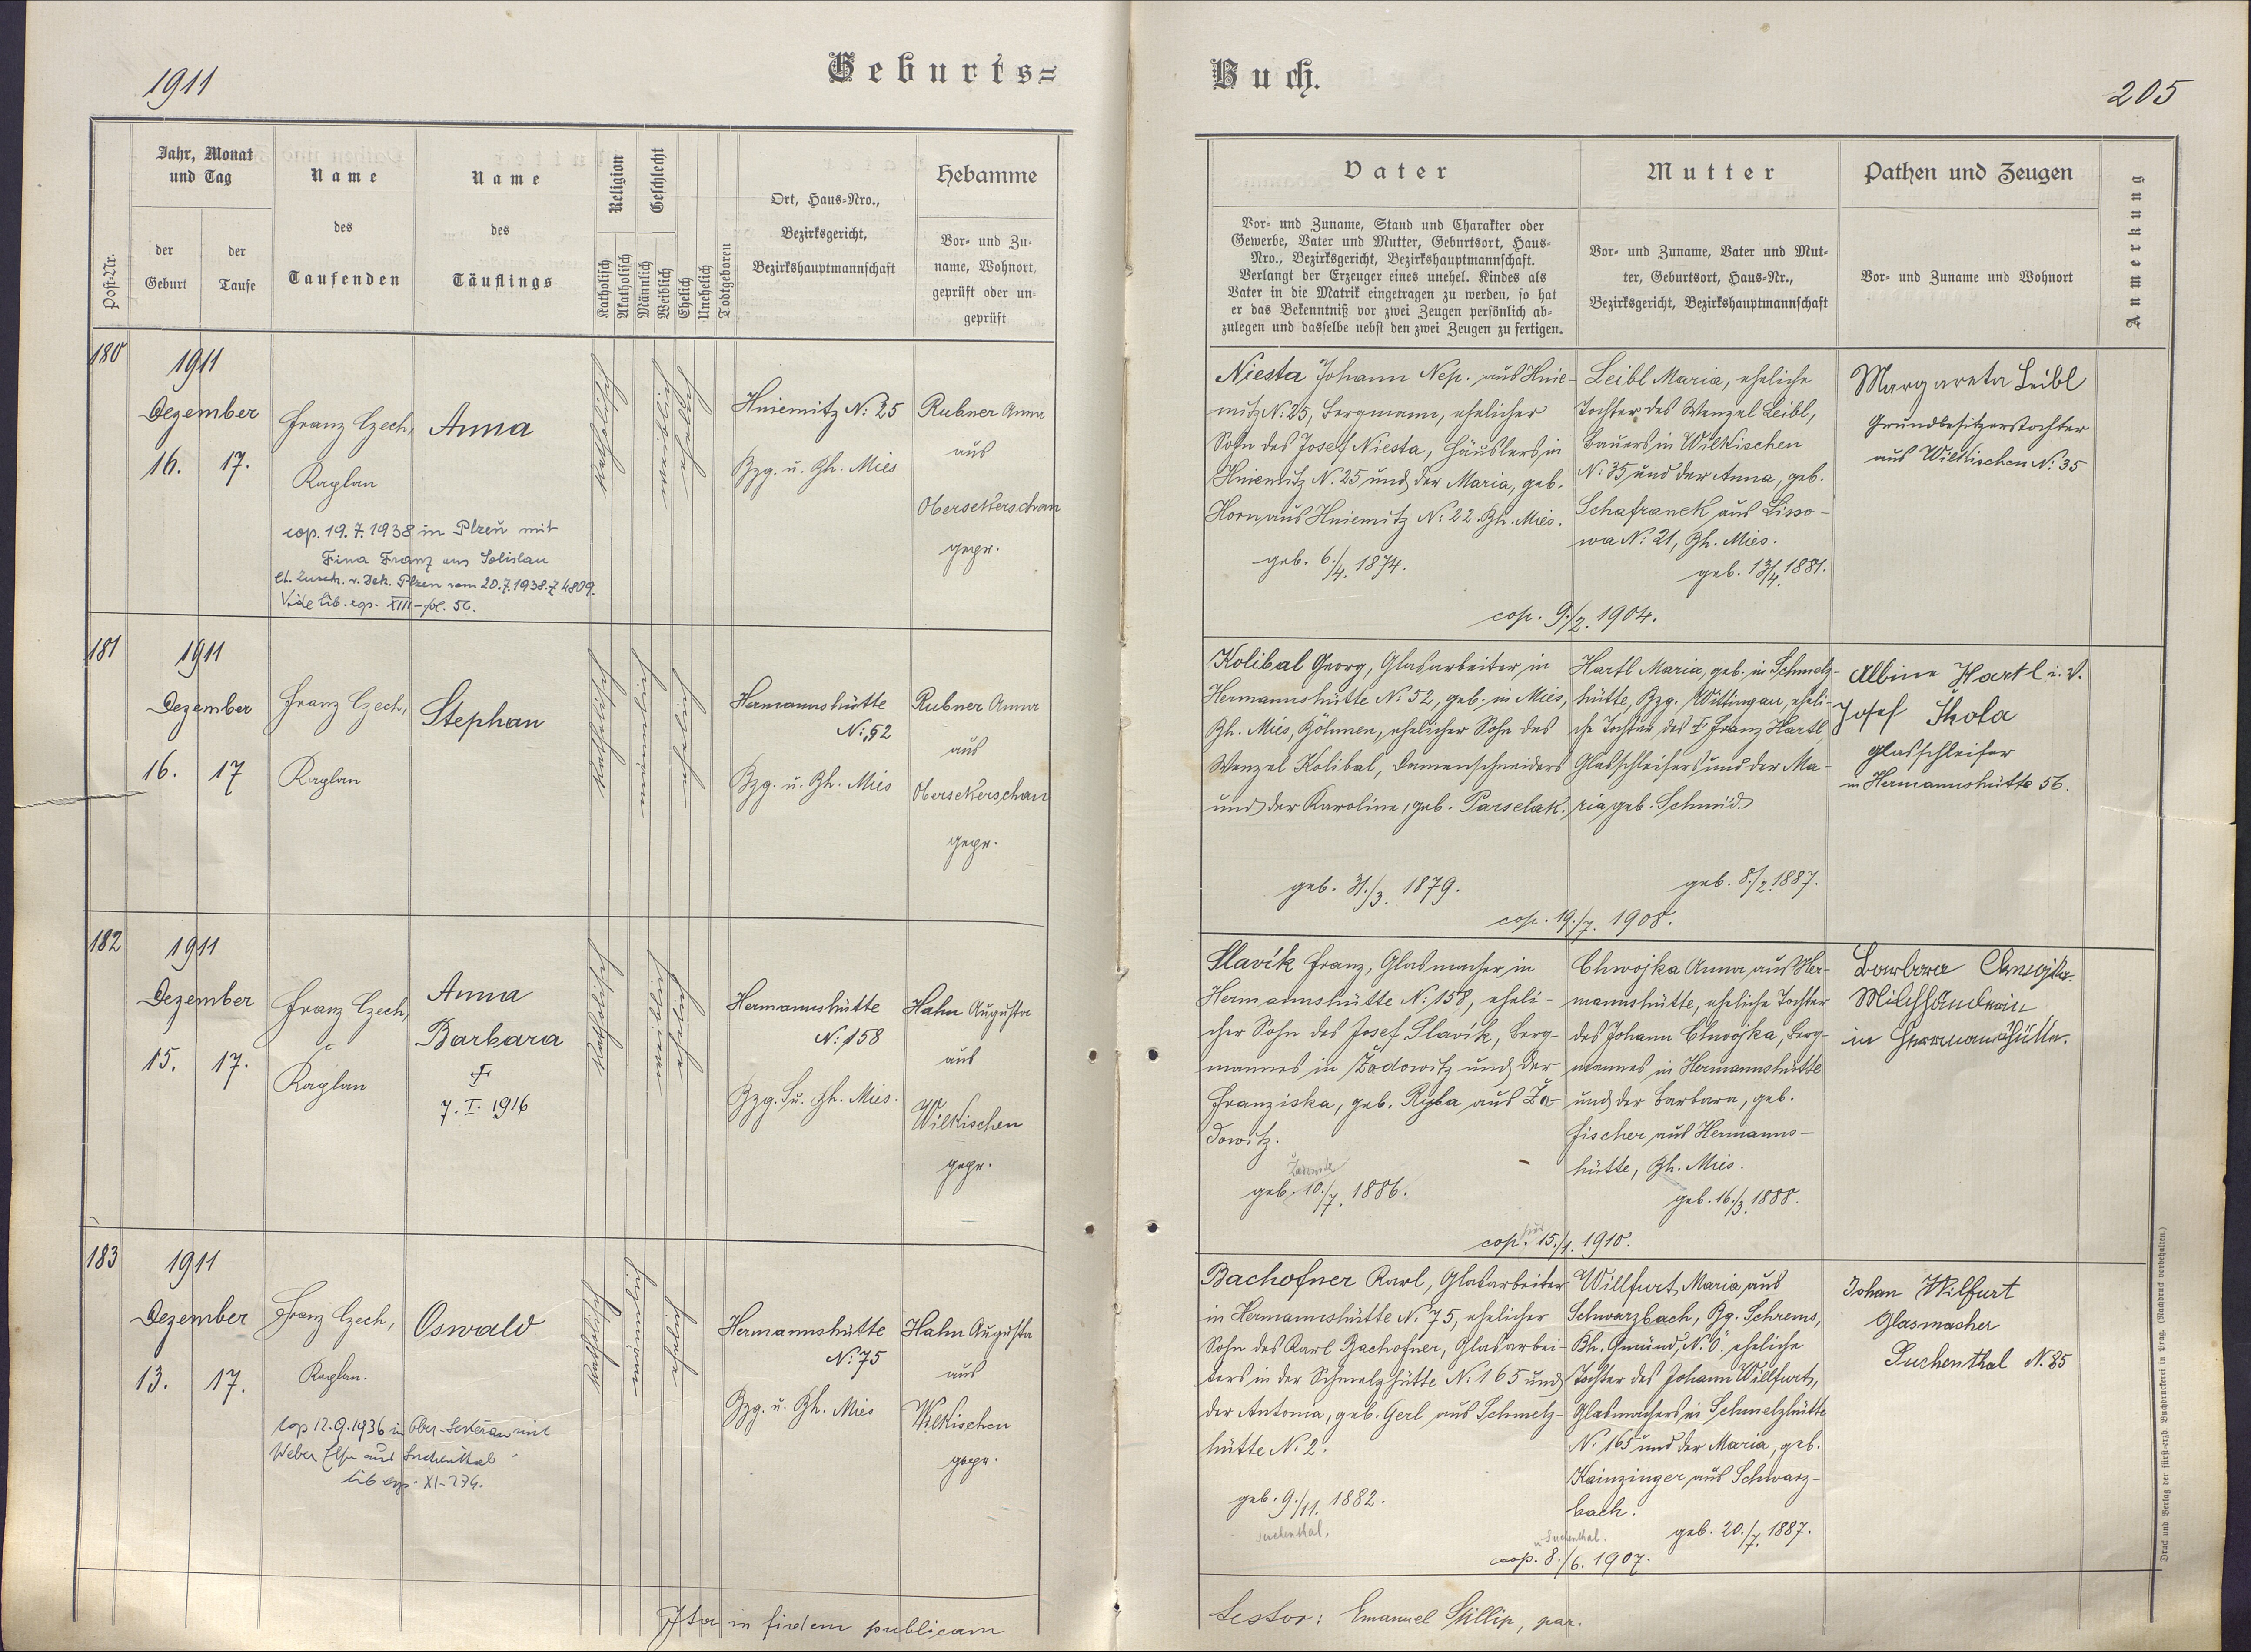 1911
Geburts=
Buch.
205
Post-Nr.
Jahr, Monat
und Tag
der
Geburt
der
Taufe
Name
des
Taufenden
Name
des
Täuflings
Religion
Katholisch
Akatholisch
Geschlecht
Männlich
Weiblich
Ehelich
Unehelich
Todtgeboren
Ort, Haus-Nro.,
Bezirksgericht,
Bezirkshauptmannschaft
Hebamme
Vor- und Zu-
name, Wohnort,
geprüft oder un-
geprüft
Vater
Vor- und Zuname, Stand und Charakter oder
Gewerbe, Vater und Mutter, Geburtsort, Haus-
Nro., Bezirksgericht, Bezirkshauptmannschaft.
Verlangt der Erzeuger eines unehel. Kindes als
Vater in die Matrik eingetragen zu werden, so hat
er das Bekenntniß vor zwei Zeugen persönlich ab-
zulegen und dasselbe nebst den zwei Zeugen zu fertigen.
Mutter
Vor- und Zuname, Vater und Mut-
ter, Geburtsort, Haus-Nr.,
Bezirksgericht, Bezirkshauptmannschaft
Pathen und Zeugen
Vor- und Zuname und Wohnort
Anmerkung
180
1911
Dezember
16. 17.
Franz Czech,
Kaplan
Anna
cop. 19.7.1938 in Plzeň mit
Fina Franz aus Solislau
lt. Zusch. v. Dek. Plzen vom 20.7.1938. Z 4809.
Vide lib. cop. XIII - fol. 56.
katholisch
ehelich
Hniemitz N: 25
Bzg. u. Bh. Mies
Rubner Anna
aus
Obersekerschan
gepr.
Niesta Johann Nep. aus Hnie-
mitz N: 25, Bergmann, ehelicher
Sohn des Josef Niesta, Häuslers in
Hniemitz N: 25 und der Maria, geb.
Horn aus Hniemitz N: 22. Bh. Mies.
geb. 6./4. 1874.
Leibl Maria, eheliche
Tochter des Wenzel Leibl,
Bauers in Wilkischen
N: 35 und der Anna, geb.
Schafranek aus Lisso-
wa N: 21, Bh. Mies.
geb. 13/4. 1881.
cop. 9./2. 1904.
Margareta Leibl
Grundbesitzerstochter
aus Wilkischen N: 35
181
1911
Dezember
16. 17
Franz Czech,
Kaplan
Stephan
katholisch
ehelich
Hermannshütte
N: 52
Bzg. u. Bh. Mies
Rubner Anna
aus
Obersekerschan
gepr.
Kolibal Georg, Glasarbeiter in
Hermannshütte N: 52, geb. in Mies,
Bh. Mies, Böhmen, ehelicher Sohn des
Wenzel Kolibal, Damenschneiders
und der Karoline, geb. Parselak.
geb. 31./3. 1879.
Hartl Maria, geb. in Schmelz-
hütte, Bzg. Wittingau, eheli-
che Tochter des † Franz Hartl
Glasschleifers und der Ma-
ria geb. Schmid.
geb. 8./2. 1887.
cop. 19./7. 1908.
Albine Hartl i. V.
Josef Škola
Glasschleifer
in Hermannshütte 56.
182
1911
Dezember
15. 17.
Franz Czech,
Kaplan
Anna
Barbara
†
7. I. 1916
katholisch
ehelich
Hermannshütte
N: 158
Bzg. u. Bh. Mies.
Hahn Augusta
aus
Wilkischen
gepr.
Slavík Franz, Glasmacher in
Hermannshütte N: 158, eheli-
cher Sohn des Josef Slavík, Berg-
mannes in Žadowitz und der
Franziska, geb. Ryba aus Ža-
dowitz.
geb. 10./7. 1886.
Chwojka Anna aus Her-
mannshütte, eheliche Tochter
des Johann Chwojka, Berg-
mannes in Hermannshütte
und der Barbara, geb.
Fischer aus Hermanns-
hütte, Bh. Mies.
geb. 16./3. 1888.
cop. 15./1. 1910.
Barbara Chwojka
Milchhändlerin
in Herrmanshütte.
183
1911
Dezember
13. 17.
Franz Czech,
Kaplan.
Oswald
cop 12.9.1936 in Ober-Sekeran mit
Weber Else aus Suchenthal
lib cop. XI-274.
katholisch
ehelich
Hermannshütte
N: 75
Bzg. u. Bh. Mies
Hahn Augusta
aus
Wilkischen
gepr.
Bachofner Karl, Glasarbeiter
in Hermannshütte N: 75, ehelicher
Sohn des Karl Bachofner, Glasarbei-
ters in der Schmelzhütte N: 165 und
der Antonia, geb. Gerl aus Schmelz-
hütte N: 2.
geb. 9./11. 1882.
Suchenthal.
Willfurt Maria, aus
Schwarzbach, Bg. Schrems,
Bh. Gmünd, N.Ö. eheliche
Tochter des Johann Willfurt,
Glasmachers in Schmelzhütte
N: 165 und der Maria, geb.
Kainzinger aus Schwarz-
bach.
geb. 20./7. 1887.
Suchenthal.
cop. 8./6. 1907.
Johan Wilfurt
Glasmacher
Suchenthal N. 85
Ita in fidem publicam
testor: Emanuel Stillip, par.
Druck und Verlag der fürst-erzb. Buchdruckerei in Prag. (Nachdruck vorbehalten.)